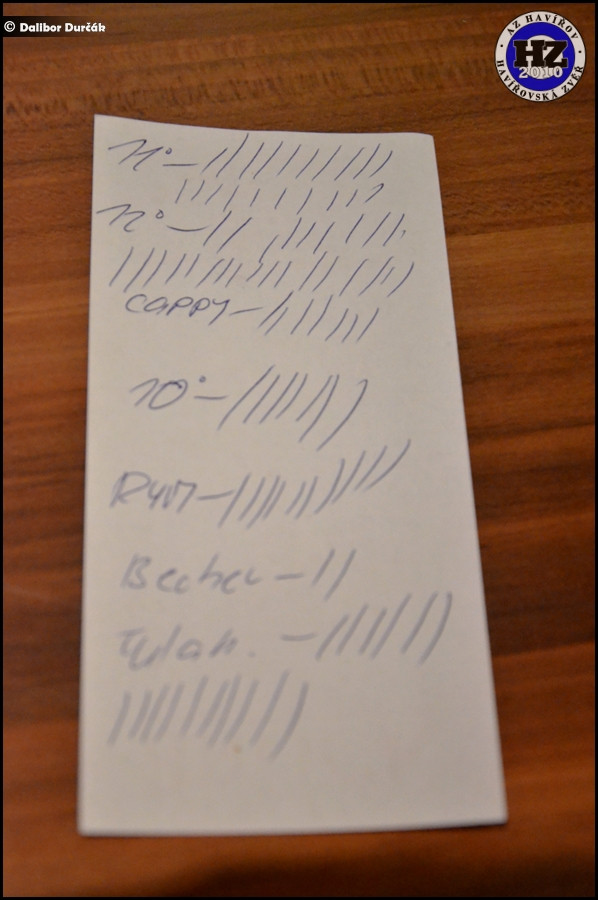 © Dalibor Durčák
AZ HAVÍŘOV
HZ
2010
HAVÍŘOVSKÁ ZVĚŘ
11° - ||||||||||
||||||||||
12° - ||||||||||
||||||||||||||||||||
CAPPY - |||||||
10° - |||||||
RUM - |||||||||||
Becher - ||
- |||||||
|||||||||||